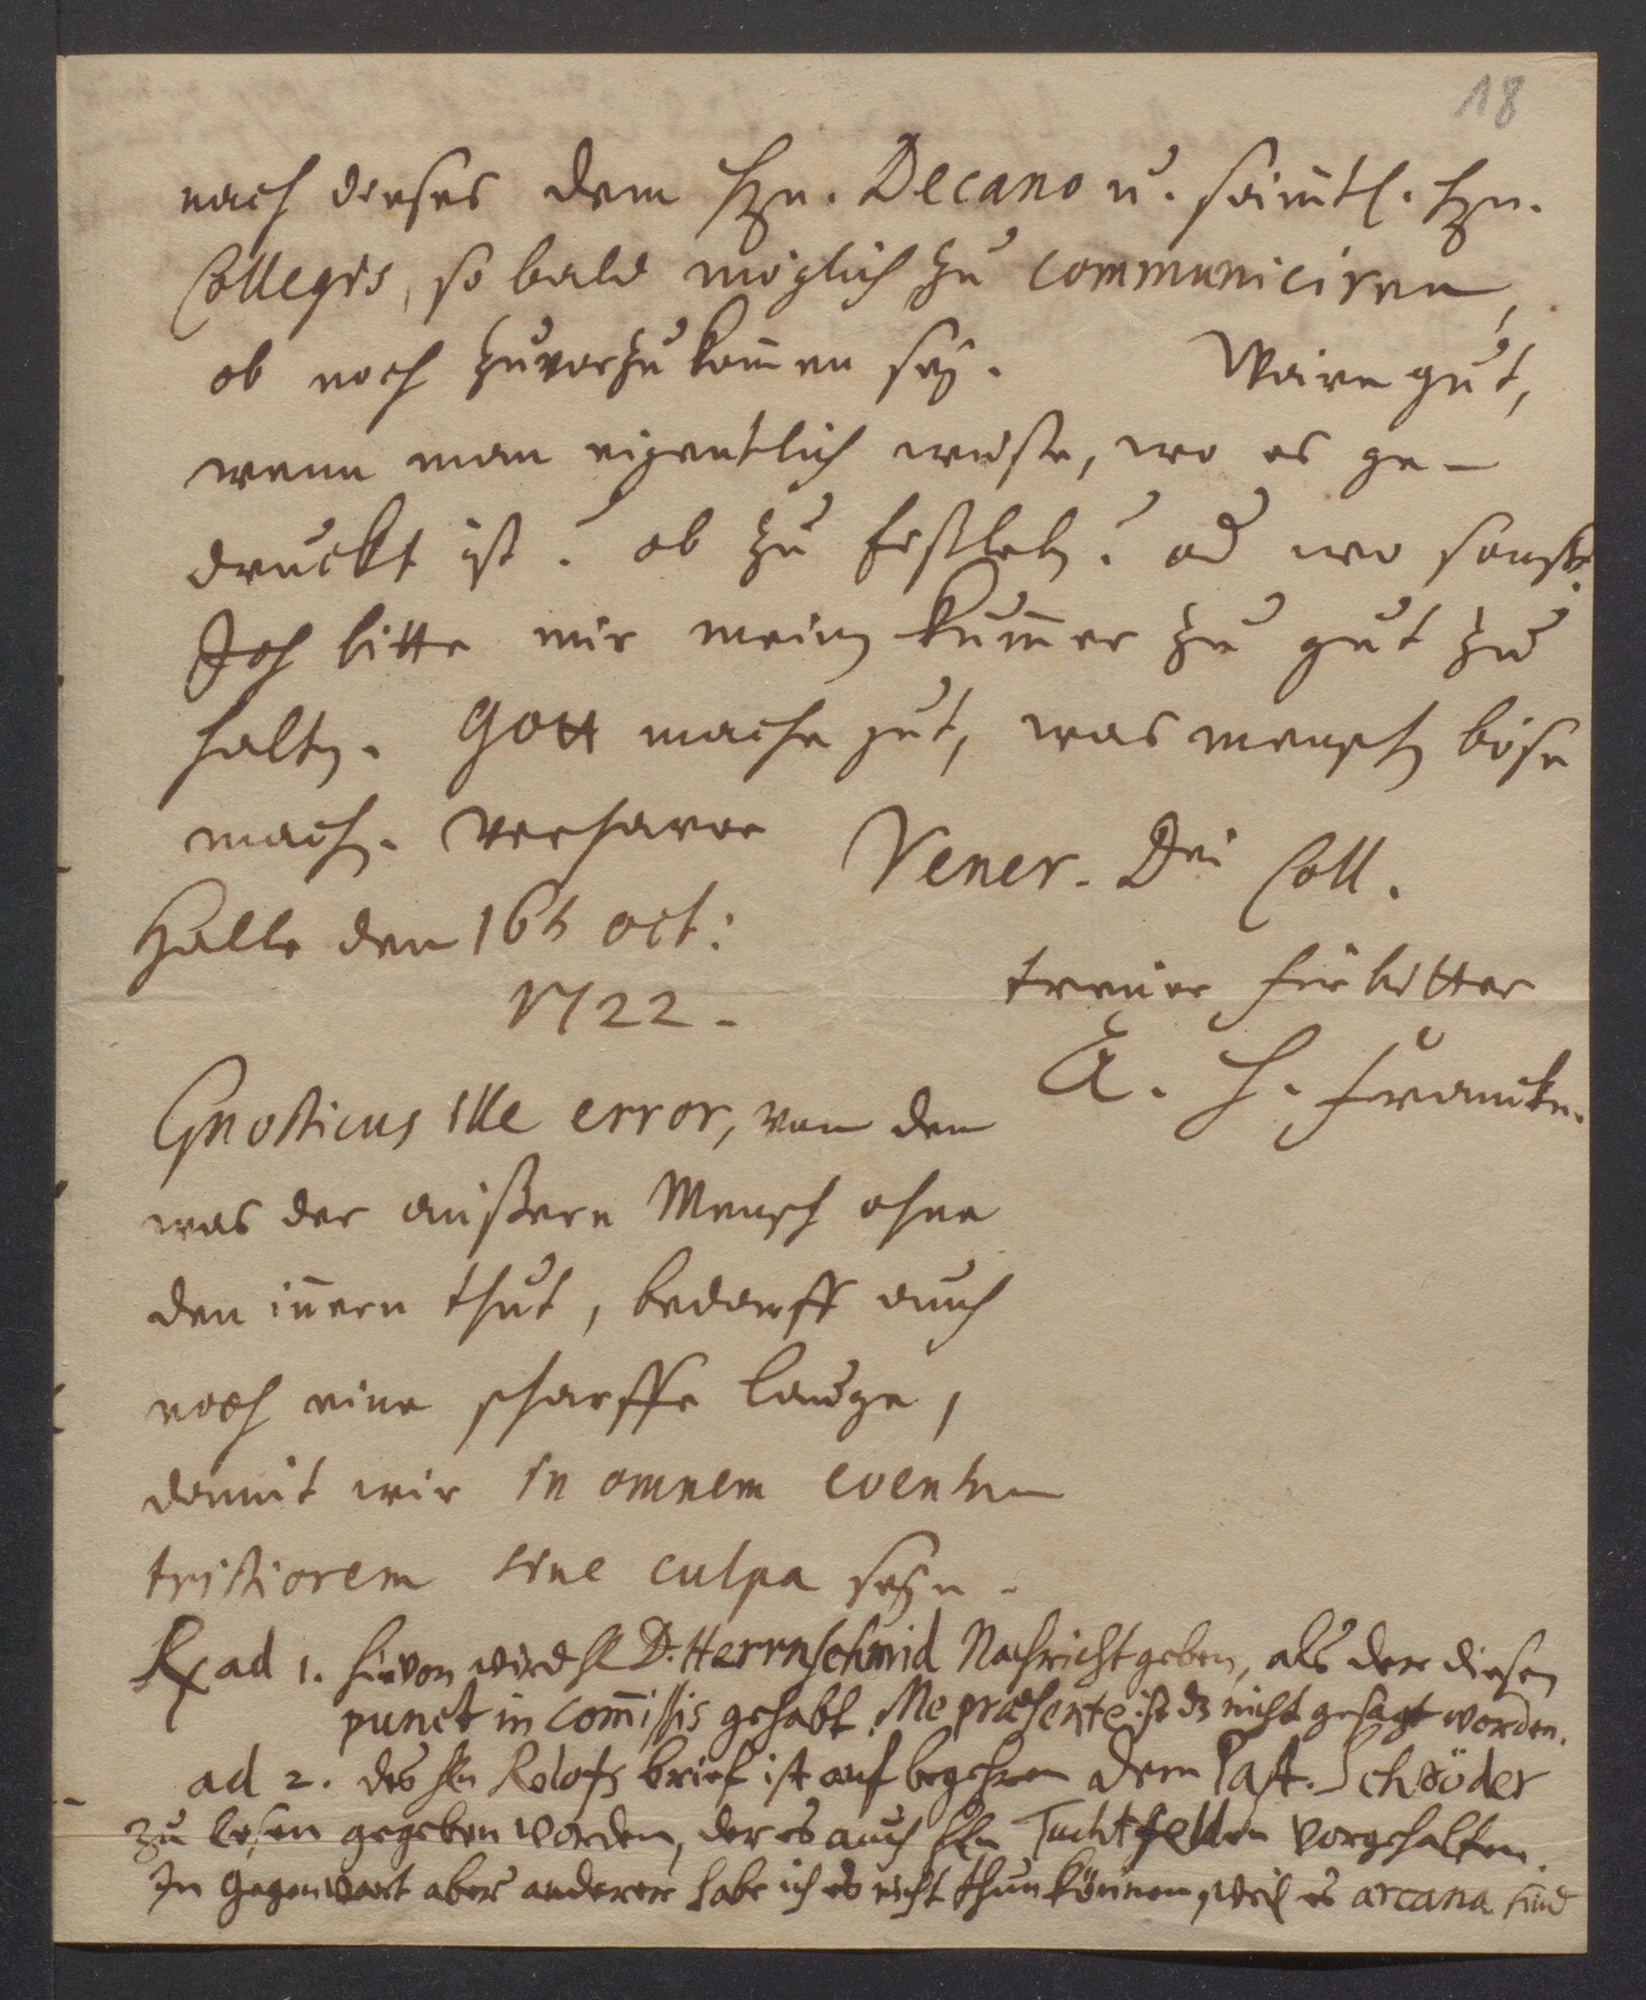 18
nach dieses dem Hrn. Decano u. säm̄tl. Hrn.
Collegis, so bald möglich zu communiciren,
ob noch zuvorzukom̄en sey. Wäre gut,
wenn man eigentlich wüste, wo es ge-
druckt ist? ob zu Eißleben? od wo sonst?
Ich bitte mir meinen Kum̄er zu gut zu
halten. Gott mache gut, was menschen böse
machen. Verharre
Vener. Dni Coll.
Halle den 16h oct:
1722.
treuer fürbitter
A. H. Francke.
Gnosticus ille error, von dem
was der äußere Mensch ohne
den in̄ern thut, bedarff auch
noch eine scharffe lauge,
damit wir in omnem eventum
tristiorem sine culpa seyn.
Rx ad 1. hievon wird H D. Herrnschmid Nachricht geben, als der diesen
punct in com̄issis gehabt. Me præsente ist es nicht gesagt worden.
ad 2. des Hn Rolofs brief ist auf begehren dem Past. Schröder
zu lesen gegeben worden, der es auch Hn Tuchtfelden vorgehalten.
In Gegenwart aber anderer habe ich es nicht thun können, weil es arcana sind